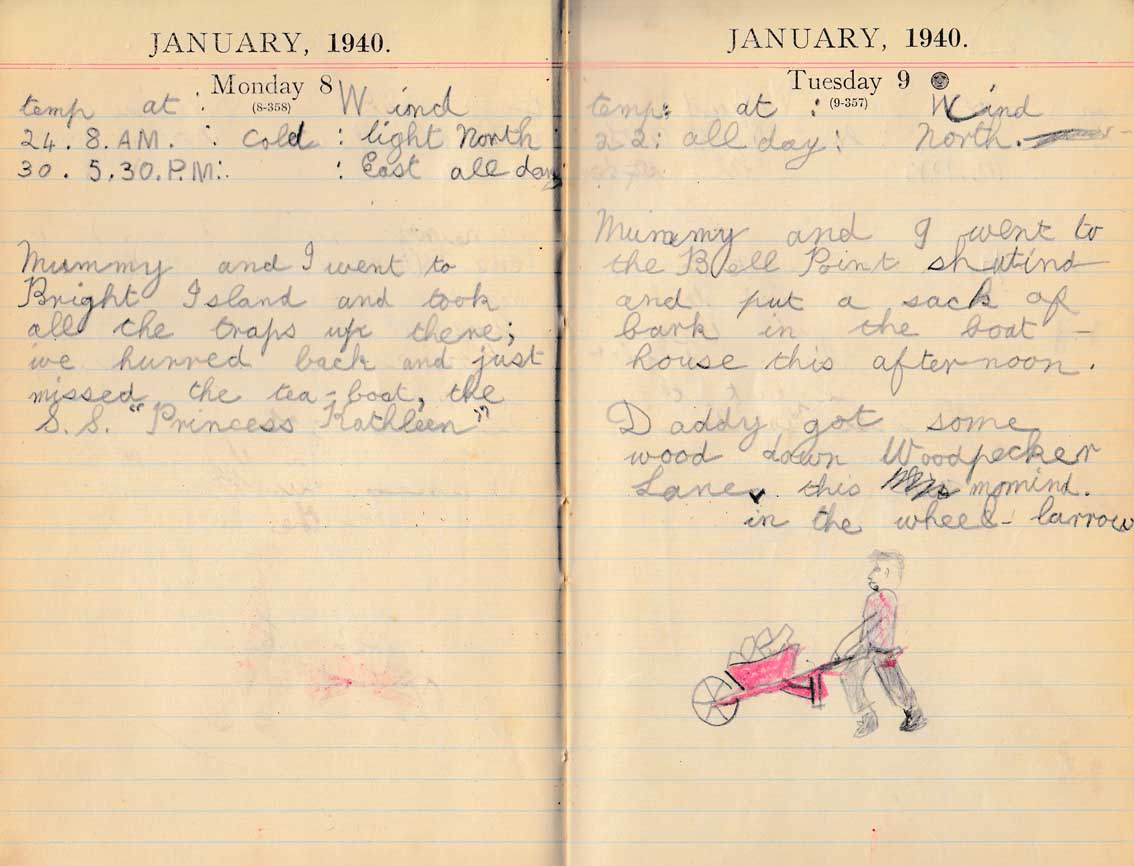 JANUARY, 1940.
Monday 8
(8-358)
temp at : Wind
24. 8. AM. : cold : light North
30. 5.30. P.M: : East all day
Mummy and I went to
Bright Island and took
all the traps up there;
we hurred back and just
missed the tea-boat, the
S.S. "Princess Kathleen"
JANUARY, 1940.
Tuesday 9
(9-357)
temp: at : Wind
22: all day: North.
Mummy and I went to
the Bell Point
and put a sack of
bark in the boat -
house this afternoon.
Daddy got some
wood down Woodpecker
Lane, this momind.
in the wheel-larrow